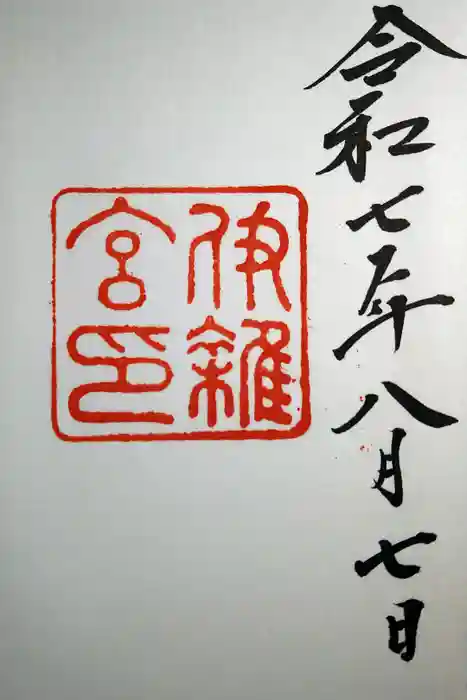 令和七年八月七日
伊雜
宮印